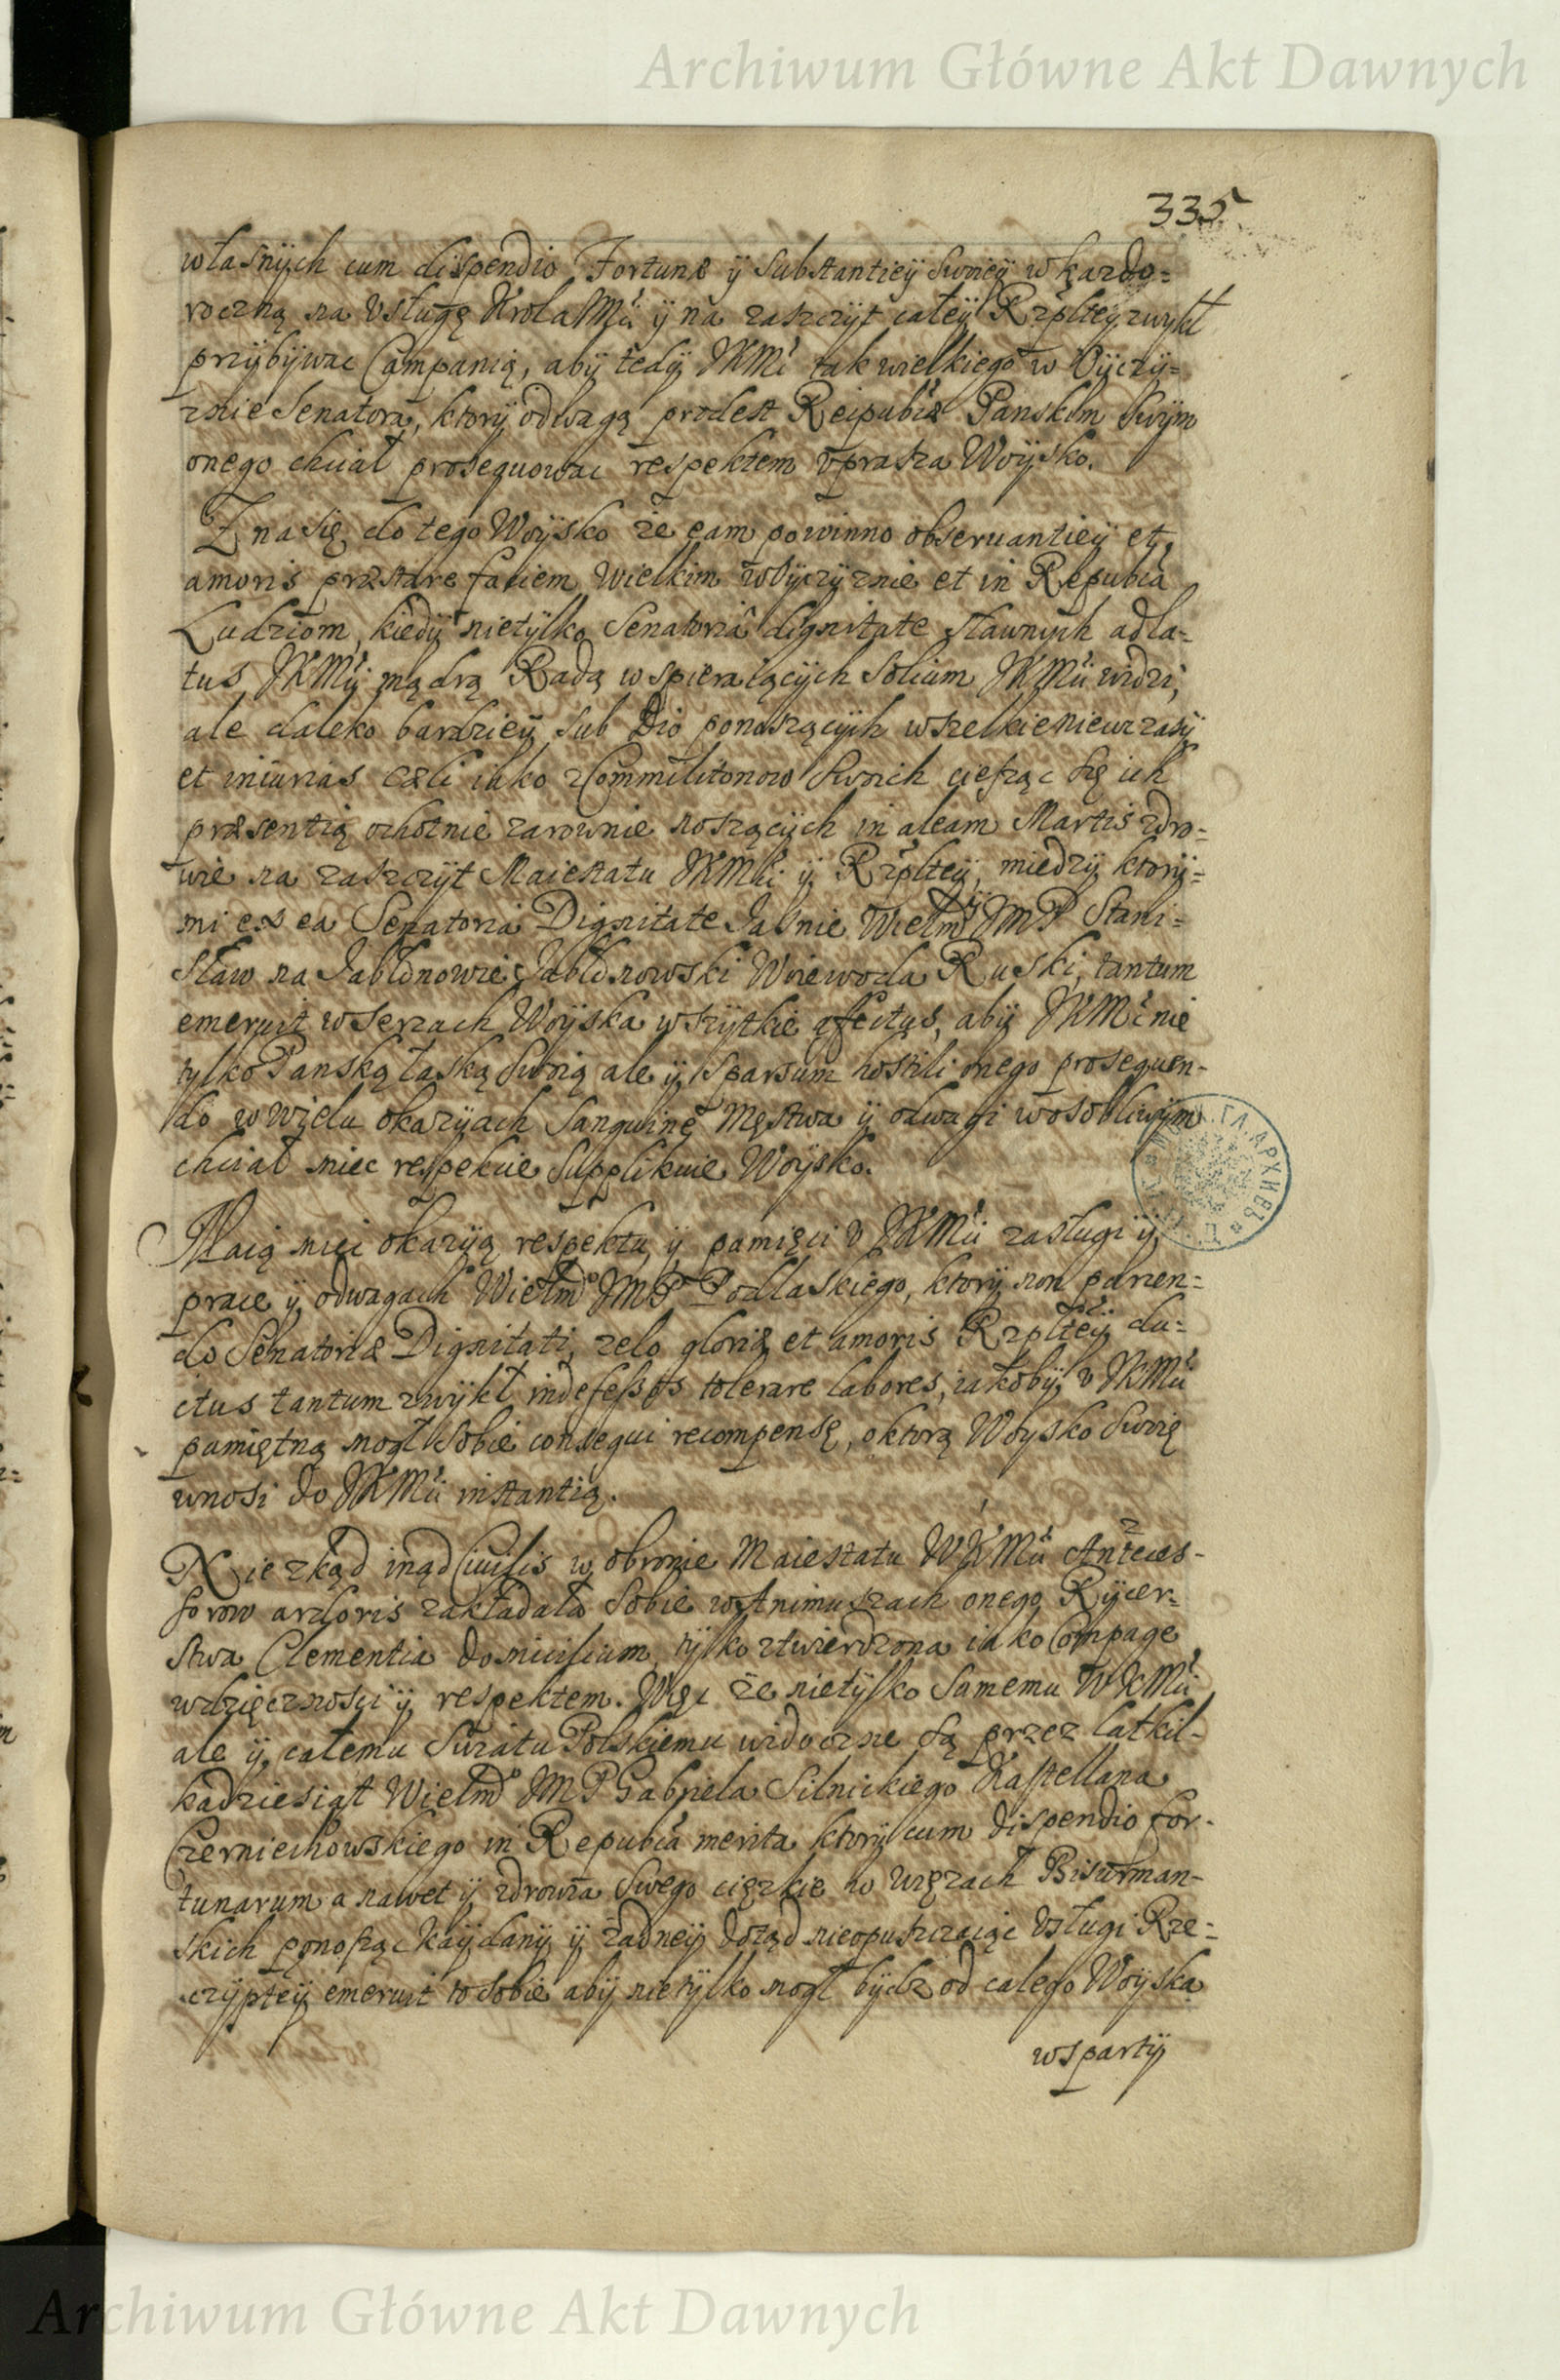 Archiwum Główne Akt Dawnych
335
własnÿch cum dispendio Fortunæ ÿ Substantieÿ Swoieÿ w kazdo=
roczną na Vsługę Krola Mci ÿ na zaszczÿt całeÿ Rzpłteÿ zwÿkł
przÿbÿwac Campanią, abÿ tedÿ JKMć tak wielkiego w Oÿczÿ=
znie Senatora, ktorÿ odwagą prodest Reipubcæ Panskim Swÿm
onego chciał prosequowac respektem vprasza Woÿsko.
Zna się do tego Woÿsko że eam powinno obseruantieÿ et
amoris præstare faciem Wielkim w Oÿczÿznie et in Repubca
Ludziom, kiedÿ nietÿlko Senatoriâ dignitate sławnÿch ad la=
tus JKMci mądrą Radą wspieraiącÿch Solium JKMci widzi,
ale daleko bardzieÿ Sub Dio ponoszącÿch wszelkie niewczasÿ
et iniurias cæli iako z Commilitonow Swoich ciesząc się ich
præsentią ochotnie zarownie noszącÿch in aleam Martis zdro=
wie na zaszczÿt Maiestatu JKMci ÿ Rzpłteÿ, miedzÿ ktorÿ=
mi ex ea Senatoria Dignitate Jasnie Wielmÿ JMP Stani=
sław na Jabłonowie Jabłonowski Woiewoda Ruski, tantum
emeruit w Sercach Woÿska wszÿtkie afectus, abÿ JKMć nie
tylko Panską łaską Swoią ale ÿ Sparsum hostili onego prosequen=
do w wielu okazÿach Sanguine Męstwa ÿ odwagi w osobliwÿm
chciał miec respekcie Supplikuie Woÿsko.
Maią miec okazÿą respektu ÿ pamięci v JKMci zasługi ÿ
prace ÿ odwagach Wielmo JMP Podlaskiego, ktorÿ non parcen=
do Senatoriæ Dignitati, zelo gloriæ et amoris Rzpłteÿ du=
ctus tantum zwÿkł indefessos tolerare labores, iakobÿ v JKMci
pamiętną mogł Sobie consequi recompensę, o ktorą Woysko Swoię
wnosi do JKMci instantią.
Nie zkąd inąd Ciuilis w obronie Maiestatu WKMci Anteces=
sorow ardoris zakładała Sobie w Animuszach onego Rÿcer=
stwa Clementia domicilium, tÿlko ztwierdzona iako Compage
wdzięcznosci ÿ respektem. Więc że nietÿlko Samemu WKMci
ale ÿ całemu Swiatu Polskiemu widoczne są przez lat kil=
kadziesiąt Wielmo JMP Gabriela Silnickiego Kasztellana
Czerniechowskiego in Repubca merita ktorÿ cum dispendio for=
tunarum a nawet ÿ zdrowia Swego cięzkie w więzach Bisurman=
skich ponosząc kaÿdanÿ ÿ żadneÿ dotąd nieopuszczaiąc Vsługi Rze=
czÿpteÿ emeruit to Sobie abÿ nietÿlko mogł bÿdz od całego Woÿska
wspartÿ
Archiwum Główne Akt Dawnych